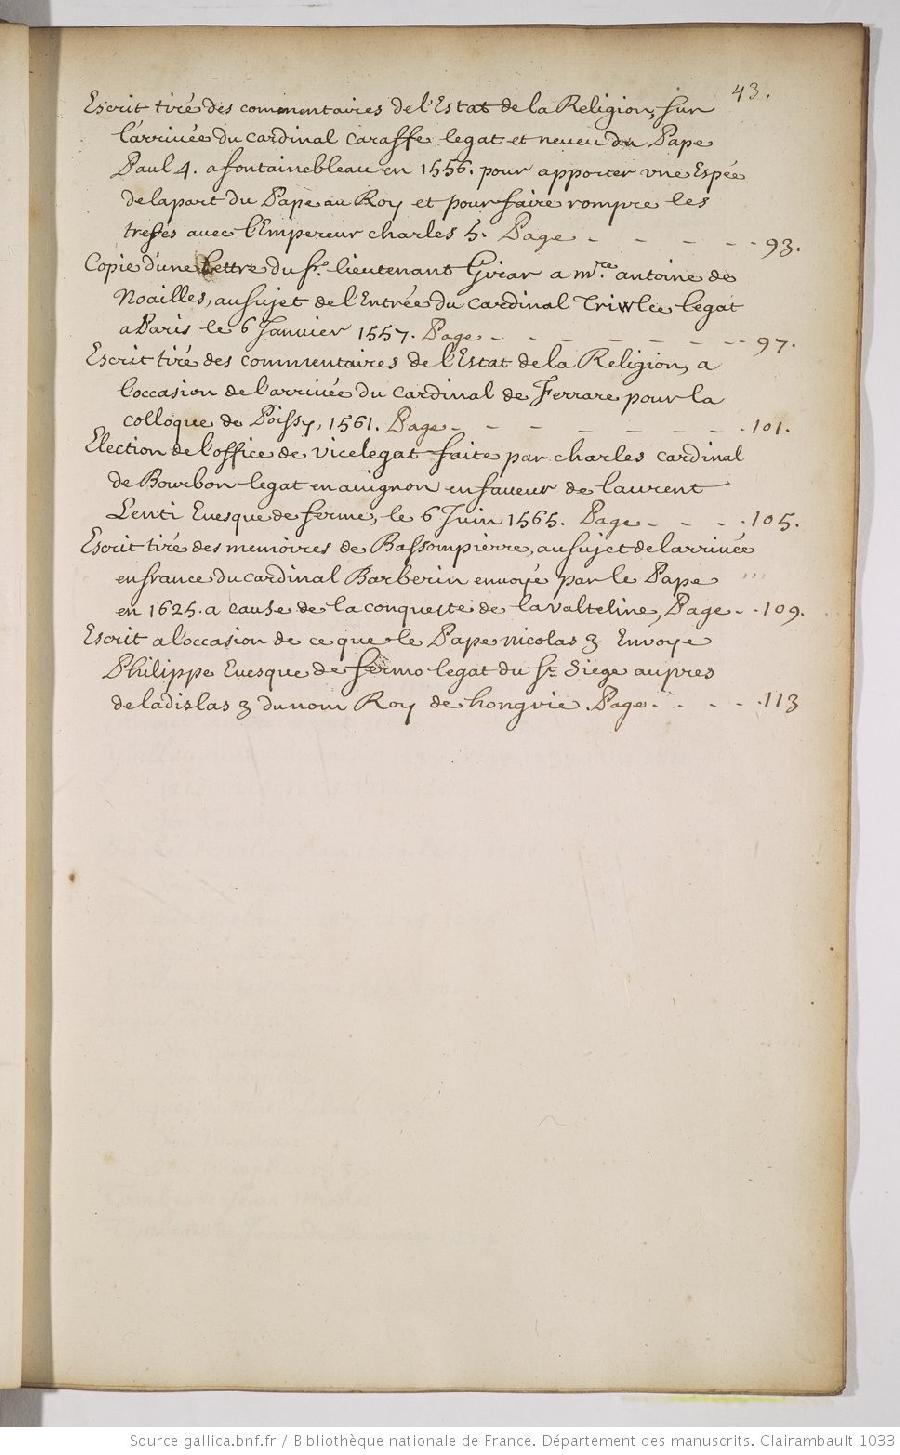 43.
Escrit tiré des commentaires de l'Estat de la Religion, sur
l'arriuée du cardinal Caraffe legat et neueu du Pape
Paul 4. a fontainebleau en 1556. pour apporter vne Espée
de la part du Pape au Roy et pour faire rompre les
trefes auec l'Empereur charles 5. Page - - - - - 93.
Copie d'une Lettre du Sr. lieutenant a mre. antoine de
Noailles, au sujet de l'Entrée du cardinal Triwlce legat
a Paris le 6 Januier 1557. Page - - - - - - - 97.
Escrit tiré des commentaires de l'Estat de la Religion, a
l'occasion de l'arriuée du Cardinal de Ferrare pour la
colloque de Poissy, 1561. Page - - - - - - - 101.
Election de l'office de vicelegat faite par charles cardinal
de Bourbon legat en auignon en faueur de laurent
Lenti Euesque de ferme, le 6 Juin 1565. Page - - - 105.
Escrit tiré des memoires de Bassompierre, au sujet de l'arriuée
en france du cardinal Barberin enuoyé par le Pape
en 1625. a cause de la conqueste de la valteline, Page - - 109.
Escrit a l'occasion de ce que le Pape nicolas 3 Enuoye
Philippe Euesque de fermo legat du St. Siege aupres
de ladislas 3 du nom Roy de hongrie. Page - - - - 113
Source gallica.bnf.fr / Bibliothèque nationale de France. Département des manuscrits. Clairambault 1033